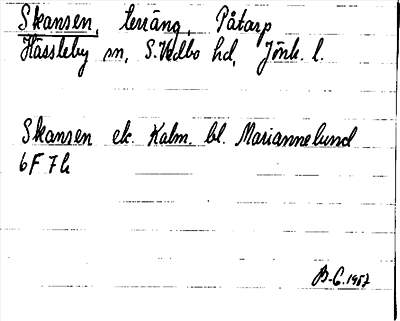 Skansen, terräng, Påtarp
Hässleby sn, S. Vedbo hd, Jönk. l.
Skansen ek. Kalm. bl. Mariannelund
6F 7h
B-G. 1957